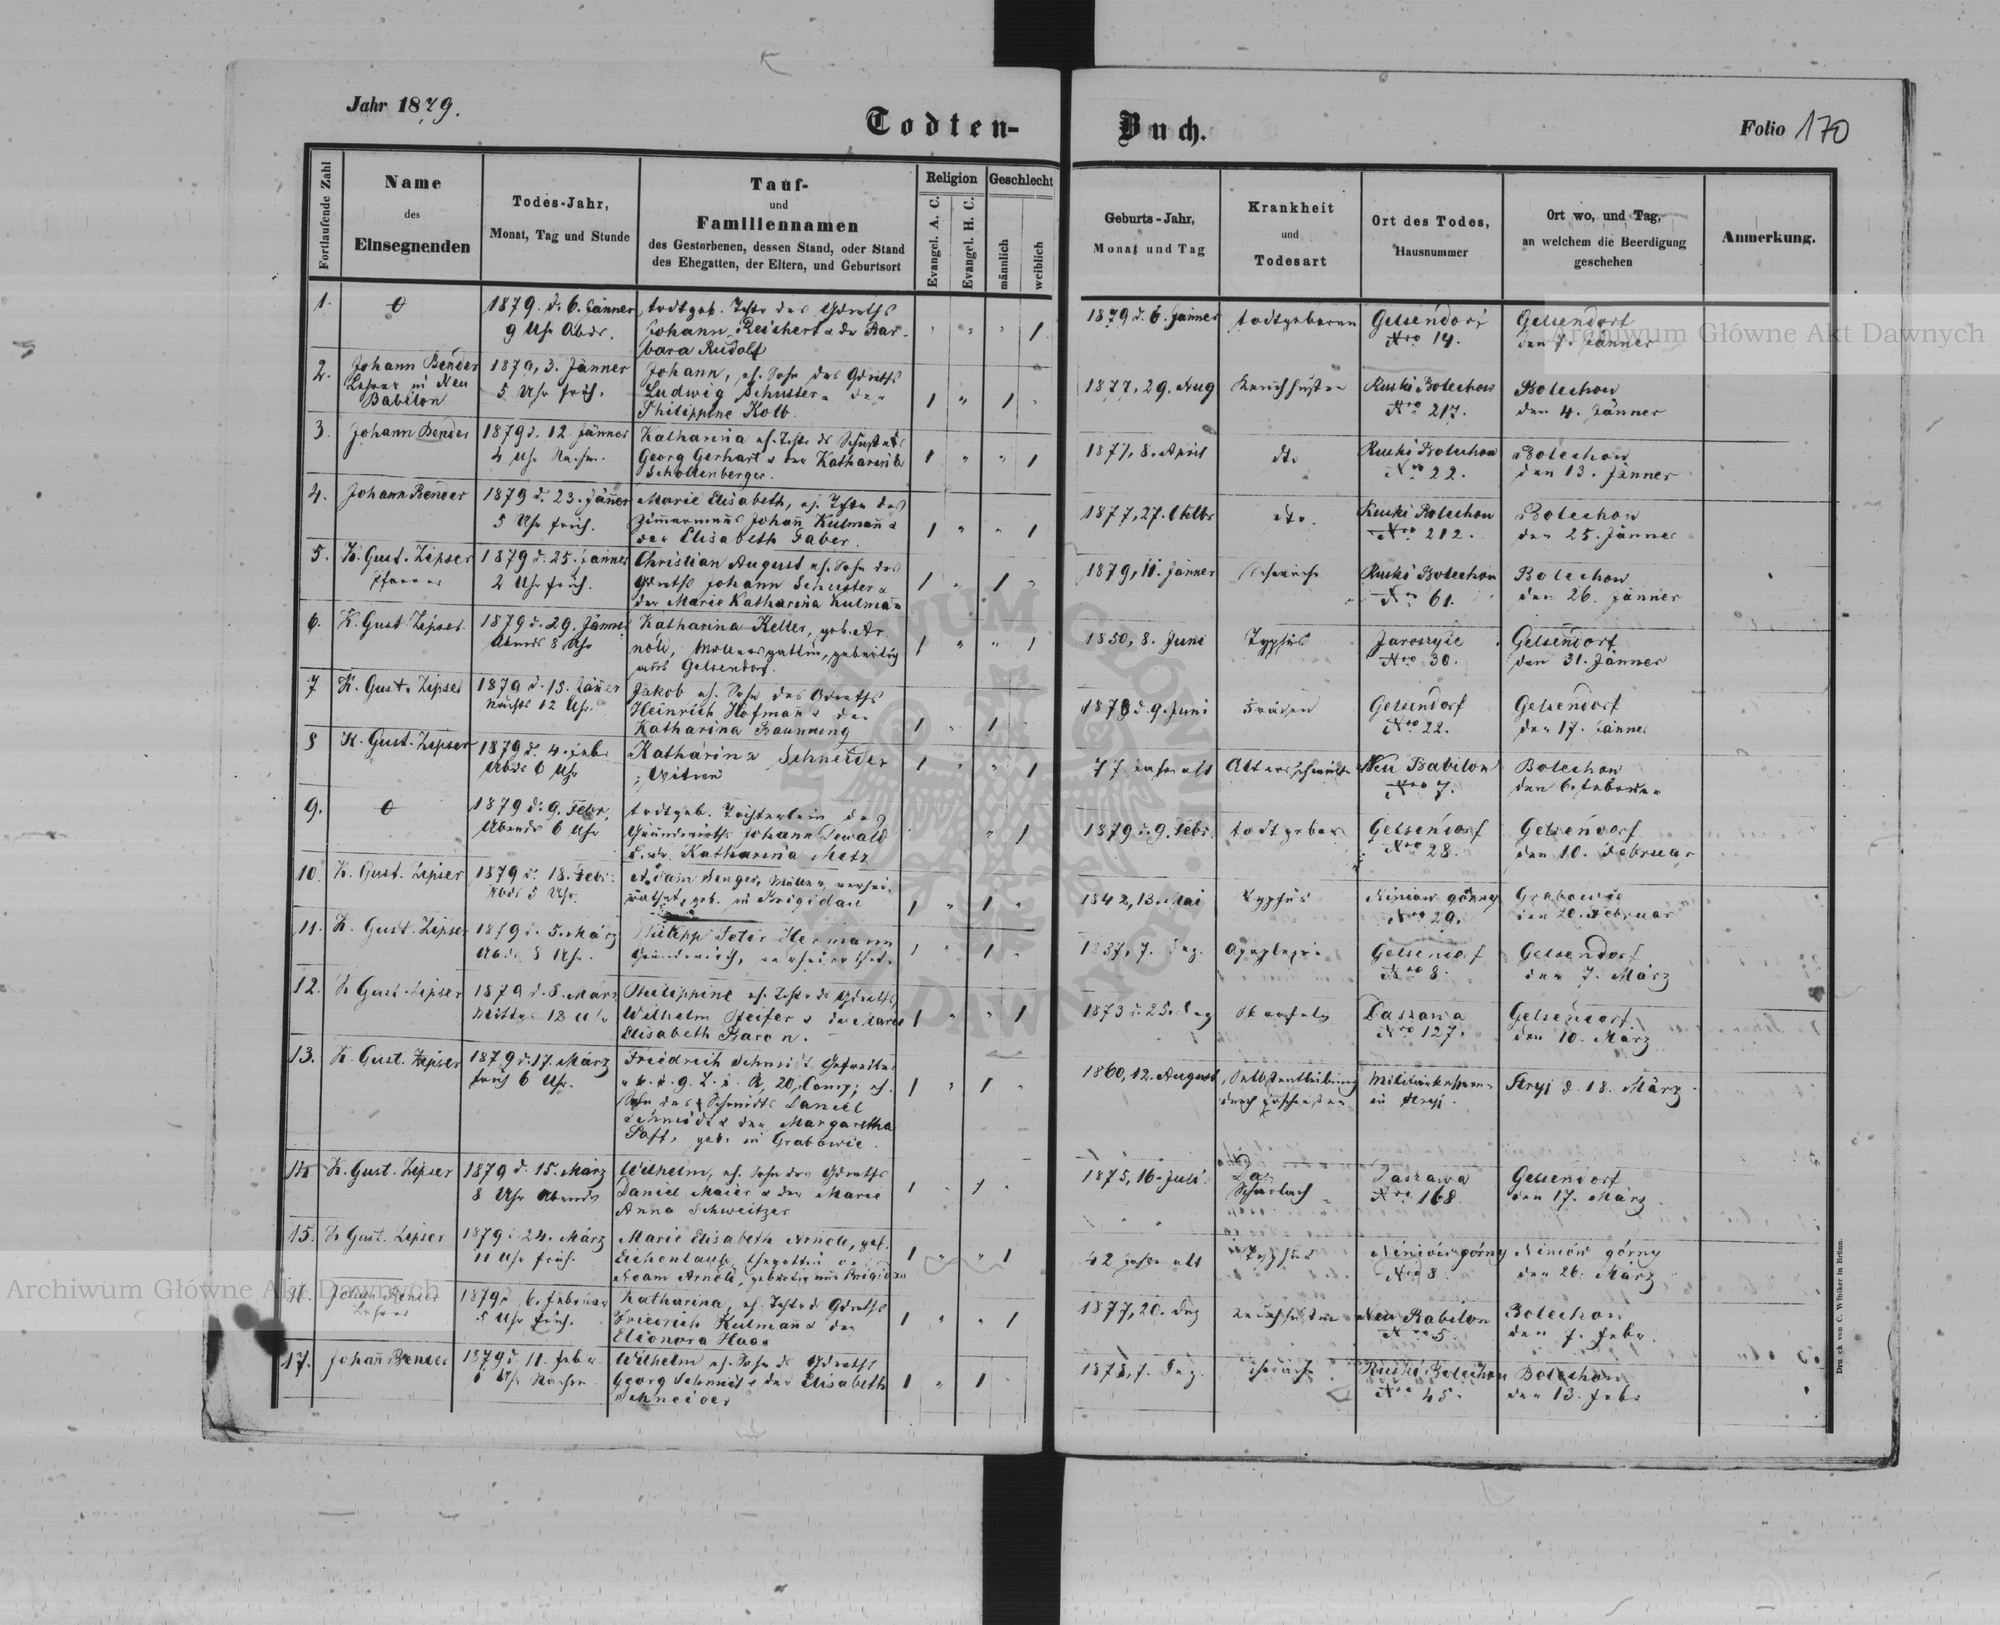 Jahr 1879.
Todten-
Buch.
Folio 170
Fortlaufende Zahl
Name
des
Einsegnenden
Todes-Jahr,
Monat, Tag und Stunde
Tauf-
und
Familiennamen
des Gestorbenen, dessen Stand, oder Stand
des Ehegatten, der Eltern, und Geburtsort
Religion
Evangel. A. C.
Evangel. H. C.
Geschlecht
männlich
weiblich
Geburts-Jahr,
Monat und Tag
Krankheit
und
Todesart
Ort des Todes,
Hausnummer
Ort wo, und Tag,
an welchem die Beerdigung
geschehen
Anmerkung.
1.
1879. d. 6. Jänner
9 Uhr Abds.
todtgeb. Tchtr des Gdwrths
Johann Reichert & der Bar-
bara Rudolf
1
1879 d. 6. Jänner
todtgeboren
Gelsendorf
Nro 14.
Gelsendorf
den 7. Jänner
2.
Johann Bender
Lehrer in Neu
Babilon
1879, 3. Jänner
5 Uhr früh.
Johann, eh. Sohn des Gdwrths
Ludwig Schuster & der
Philippine Kolb.
1 " 1
1877, 29. Aug
Keuchhusten
Ruski Bolechow
Nro 217.
Bolechow
den 4. Jänner
3.
Johann Bender
1879 d. 12. Jänner
4 Uhr Nachm.
Katharina eh. Tchtr ds Schusters
Georg Gerhart & der Katharina
Schollenberger.
1 " " 1
1877, 8. April
dto
Ruski Bolechow
Nro 22.
Bolechow
den 13. Jänner
4.
Johann Bender
1879 d. 23. Jänner
5 Uhr früh.
Marie Elisabeth, eh. Tchtr des
Zimmermanns Johann Kulmann &
der Elisabeth Faber.
1 " " 1
1877, 27. Oktbr
dto.
Ruski Bolechow
Nro 212.
Bolechow
den 25. Jänner
5.
K. Gust. Zipser
Pfarrer
1879 d. 25. Jänner
2 Uhr früh.
Christian August eh. Sohn des
Gdwrths Johann Schuster &
der Marie Katharina Kulmann
1 " 1
1879, 11. Jänner
Schwäche
Ruski Bolechow
Nro 61.
Bolechow
den 26. Jänner
6.
K. Gust. Zipser
1879 d. 29. Jänner
Abends 8 Uhr
Katharina Keller, geb. Ar-
nold, Müllersgattin, gebürtig
aus Gelsendorf.
1 " " 1
1850, 8. Juni
Typhus
Nro 30.
Gelsendorf
den 31. Jänner
7
K. Gust. Zipser
1879 d. 15. Jänner
Nachts 12 Uhr.
Jakob eh. Sohn des Gdwrths
Heinrich Hofmann & der
Katharina Baunung
1 1
1878 d. 9. Juni
Fraisen
Gelsendorf
Nro 22.
Gelsendorf
den 17. Jänner
8
K. Gust. Zipser
1879 d. 4. Febr
Abds 6 Uhr
Katharina Schneider
Witwe
1 " " 1
77 Jahre alt
Altersschwäche
Neu Babilon
Nro 7.
Bolechow
den 6. Februar
9.
1879 d. 9. Febr.
Abends 6 Uhr
todtgeb. Töchterlein des
Grundwirths Johann Dewald
& der Katharina Metz
" 1
1879 d. 9. Febr.
todtgebor
Gelsendorf
Nro 28.
Gelsendorf
den 10. Februar
10.
K. Gust. Zipser
1879 d. 18. Febr.
Abds 5 Uhr.
Adam Senger, Müller, verhei-
rathet, geb. in Brigidau
1 " 1
1842, 13. Mai
Typhus
Niniow górny
Nro 29.
Grabowie
den 20. Februar
11.
K. Gust. Zipser
1879 d. 5. März
Abds 8 Uhr.
Philipp Peter Hermann
Grundwirth, verheirathet.
1 " 1
1837, 7. Dez.
Apoplexie
Gelsendorf
Nro 8.
Gelsendorf
den 7. März
12.
K Gust. Zipser
1879 d. 8. März
Mittags 12 Uhr
Philippine eh. Tchtr ds Gdwrths
Wilhelm Pfeifer & der Marie
Elisabeth Baron.
1 " " 1
1873 d. 25. Dez
Skrofeln
Daszawa
Nro 127.
Gelsendorf
den 10. März
13.
K. Gust. Zipser
1879 d. 17. März
früh 6 Uhr.
Friedrich Schmidt Gefreiter
20, Comp; eh.
Sohn des Schmidts Daniel
Schmidt & der Margaretha
Paff, geb. in Grabowie.
1 " 1
1860, 12. August
Selbstentleibung
durch Erschiessen
in Stryj.
Stryj d. 18. März
14
K. Gust. Zipser
1879 d. 15. März
8 Uhr Abends
Wilhelm, eh. Sohn des Gdwrths
Daniel Maier & der Marie
Anna Schweitzer
1 1
1875, 16. Juli.
Scharlach
Daszawa
Nro 168
Gelsendorf
den 17. März
15.
K Gust. Zipser
1879 d. 24. März
11 Uhr früh.
Marie Elisabeth Arnold, geb.
Eichenlaub, Ehegattin des
Adam Arnold, gebürtig aus Brigidau
1 " " 1
42 Jahre alt
Typhus
Niniów górny
Nro 8
Niniów górny
den 26. März
16.
Johann Bender
Lehrer
1879 d. 6. Februar
5 Uhr früh.
Katharina, eh. Tchtr ds Gdwrths
Friedrich Kulmann & der
Eleonora Haas
1 " " 1
1877, 20. Dez
Keuchhusten
Neu Babilon
Nro 5.
Bolechow
den 7. Febr.
17.
Johann Bender
1879 d. 11. Febr.
Uhr Nachm
Wilhelm eh. Sohn ds Gdwrths
Georg Schmidt & der Elisabeth
Schneider
1 " 1
1878, 7. Dez.
Schwäche
Ruski Bolechow
Nro 45.
Bolechow
den 13. Febr
Druck von C. Winiker in Brünn.
Archiwum Główne Akt Dawnych
Archiwum Główne Akt Dawnych
ARCHIWUM GŁÓWNE AKT DAWNYCH